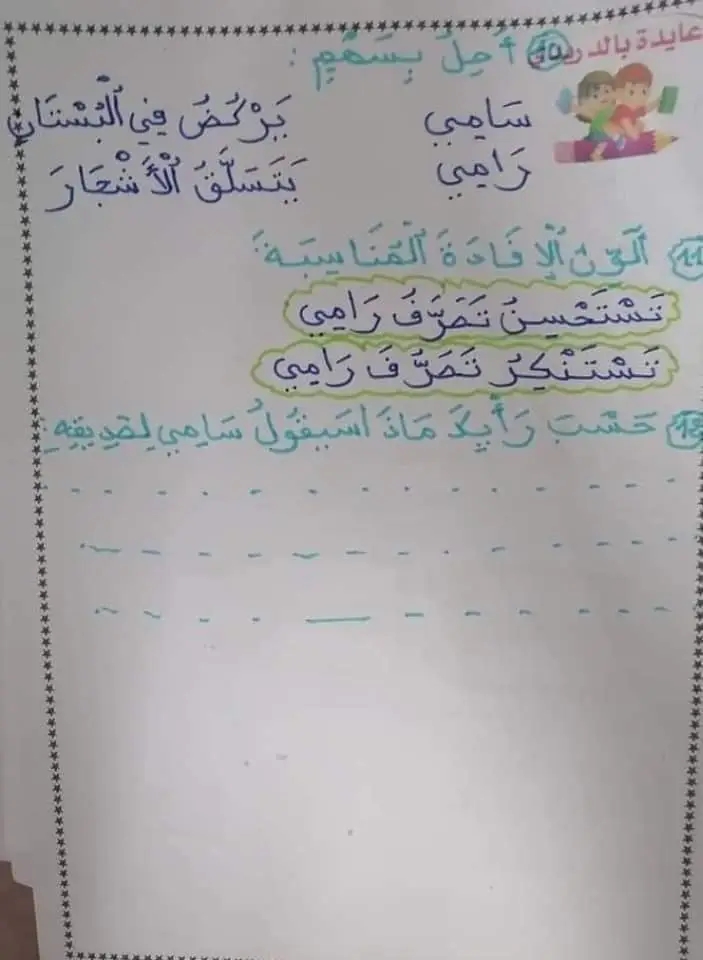 عايدة بالدريدي
10 أَصِلُ بِسَهْمٍ :
سَامِي يَرْكُضُ فِي الْبُسْتَانِ
رَامِي يَتَسَلَّقُ الْأَشْجَارَ
11 أُلَوِّنُ الْإِفَادَةَ الْمُنَاسِبَةَ :
نَسْتَحْسِنُ تَصَرُّفَ رَامِي
نَسْتَنْكِرُ تَصَرُّفَ رَامِي
12 حَسَبَ رَأْيِكَ مَاذَا سَيَقُولُ سَامِي لِصَدِيقِهِ :